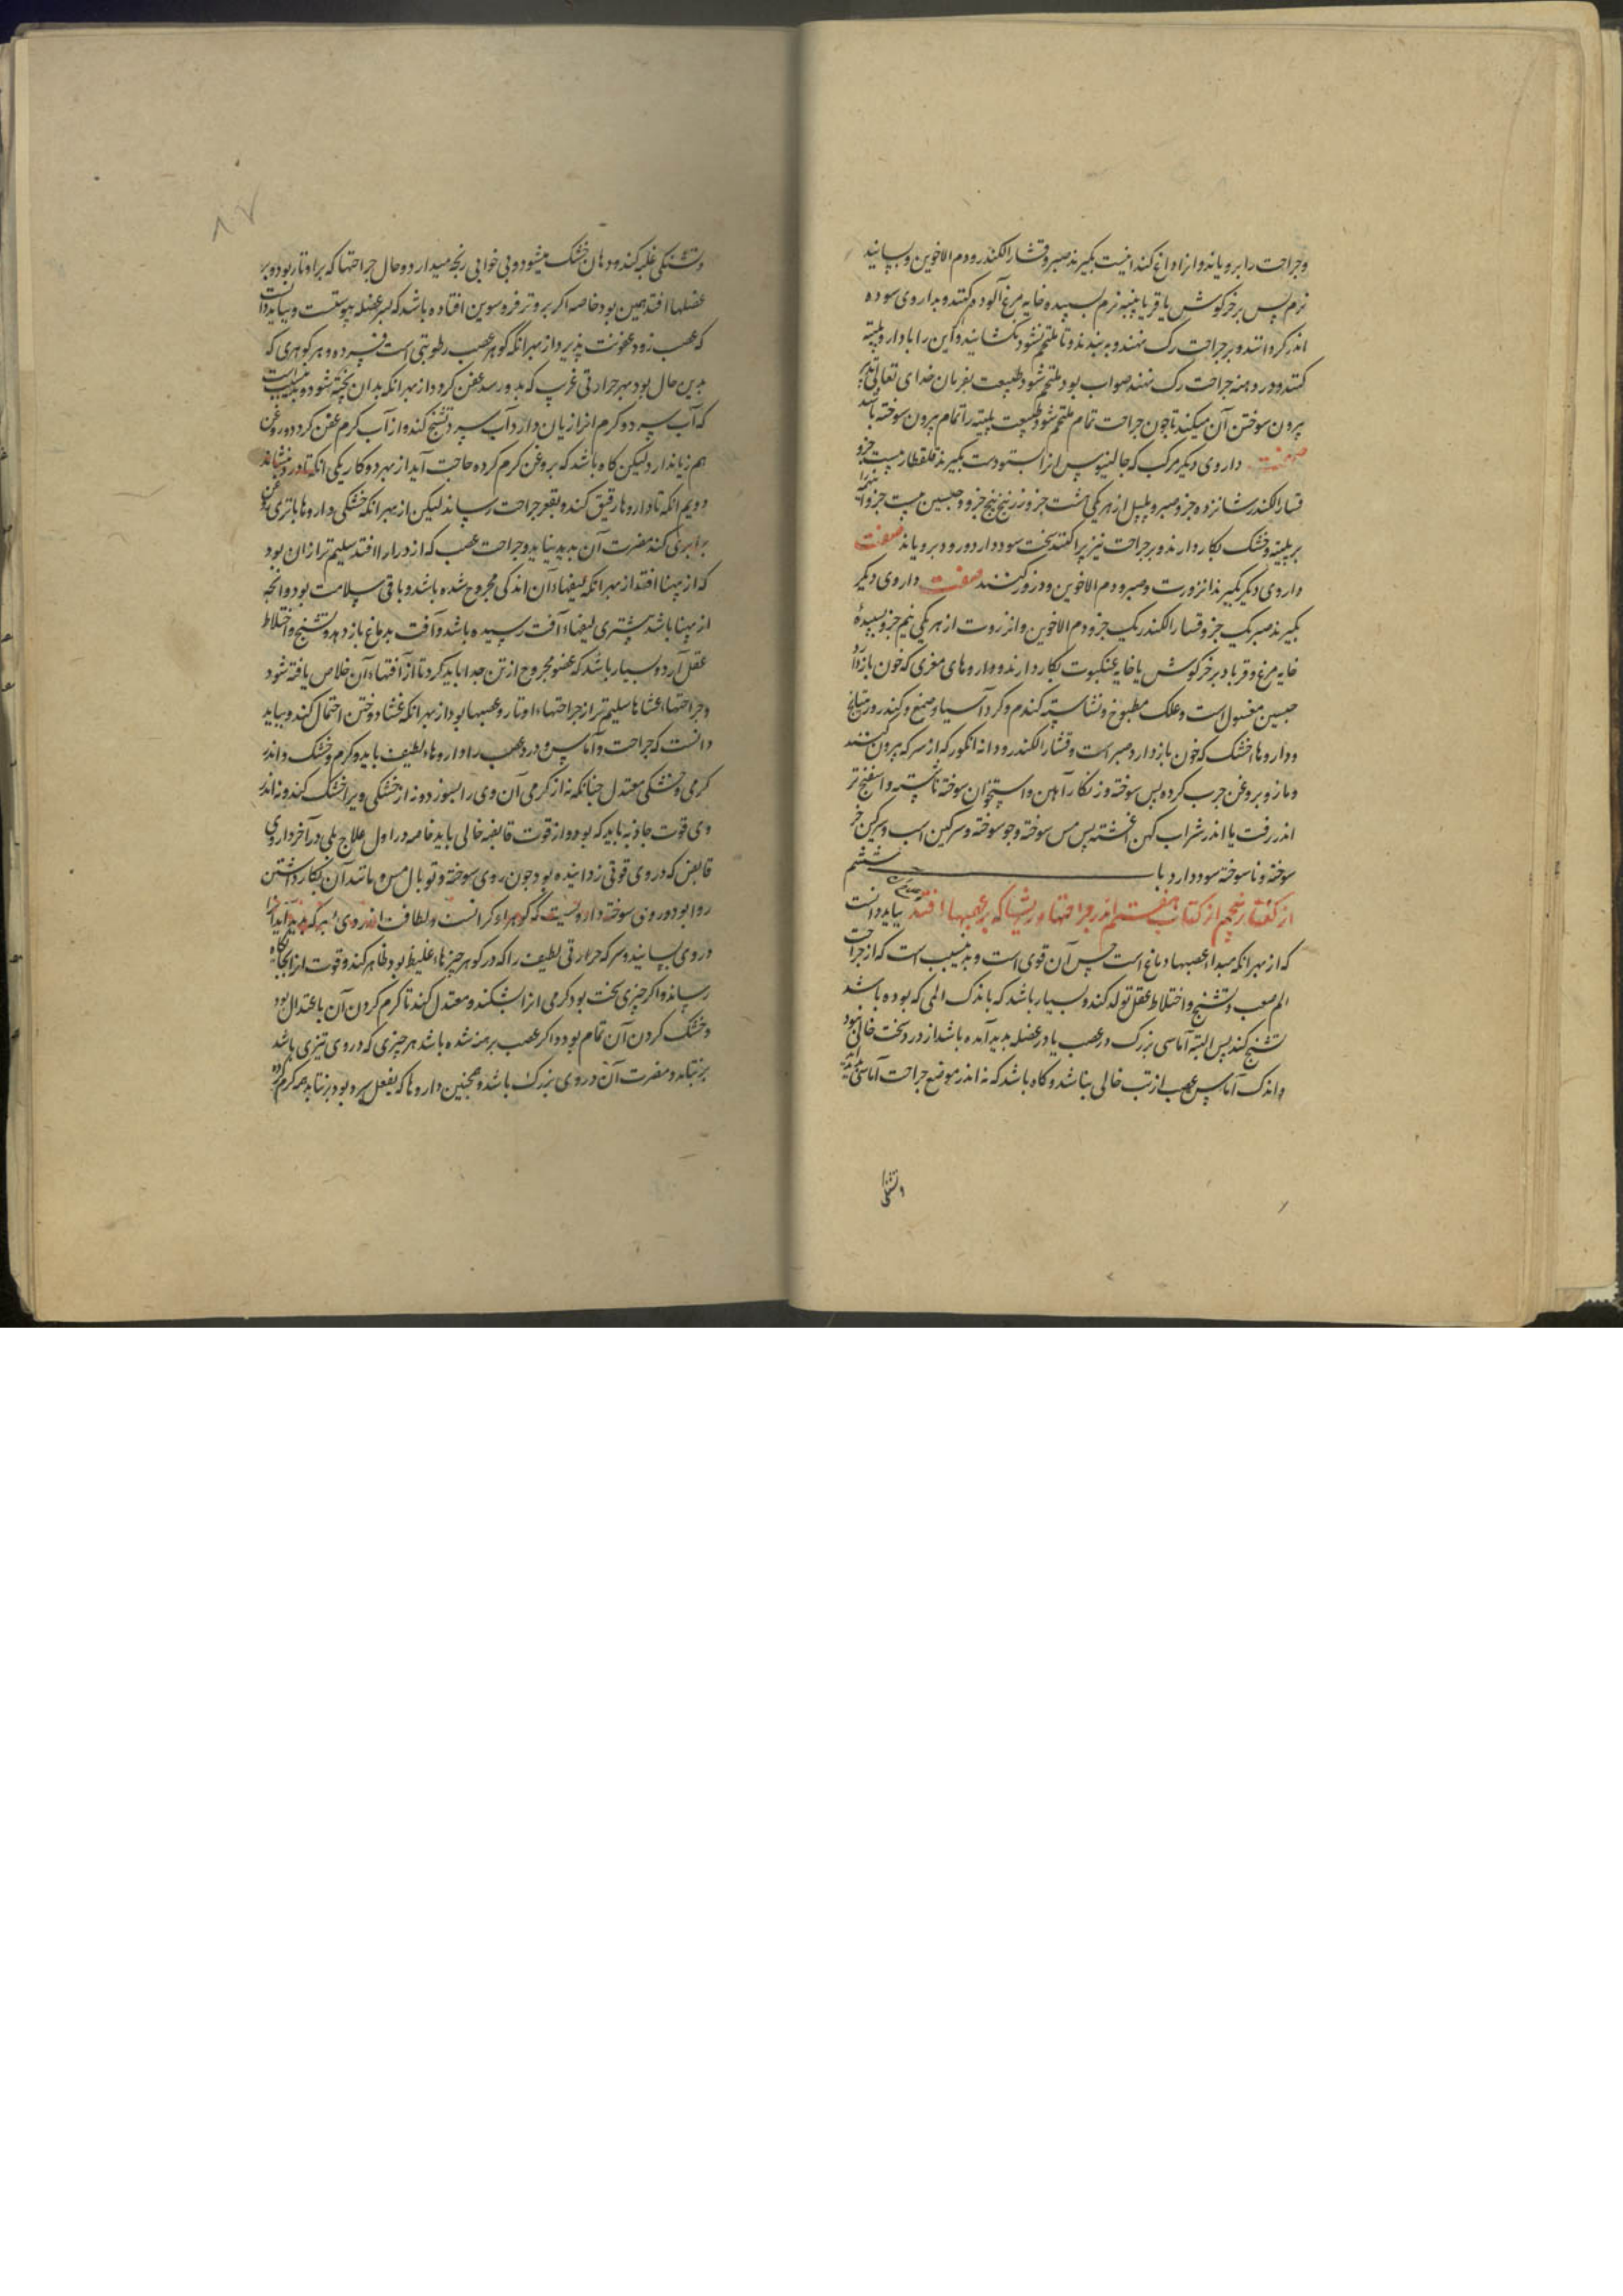 وجراحت را برویاند وانرا داغ کند اینست بگیرند صبر و قشار الکندر ودم الاخوین وبسایند
نرم پس بر خرکوش یا قز یا پنبه نرم بسپیده خایه مرغ آلوده کنند و بداروی سوده
اندر کردانند وبر جراحت رک نهند وببندند و تا ملتحم نشود نکشایند واین را با دارو پلیته
کنند ودر دهنه جراحت رک نهند صواب بود ملتحم شود وطبیعت بفرمان خدای تعالی تدبیر
بیرون سوختن آن میکند تا چون جراحت تمام ملتحم شود طبیعت پلیته را تمام بیرون سوخته باشد
صفت داروی دیکر مرکب که جالینوس انرا ستودست بکیرند قلقطار بیست جزو
قسار الکندر شانزده جزو صبر و پلپل از هر یکی هشت جزو زرنیخ پنج جزو و جبسین بیست جزو
بر پلیته وخشک بکار دارند وبر جراحت نیز پراکنند سخت سود دارد ورود برویاند صفت
داروی دیکر بکیرند انزروت وصبر ودم الاخوین و ذرور کنند صفت داروی دیکر
بکیرند صبر یک جز وقسار الکندر یک جزو دم الاخوین وانزروت از هر یکی نیم جزو بسپیدهٔ
خایه مرغ وقز یا دبر خرکوش یا خایه عنکبوت بکار دارند وداروهای مغری که خون باز دارد
جبسین مغسول است وعلک مطبوخ ونشاسته کندم وکرد آسیا وصمغ وکندر وریتیانج
وداروها خشک که خون باز دارد صبر است وقشار الکندر ودانه انکور که از سرکه بیرون کنند
ومازو بروغن چرب کرده پس سوخته وزنکار آهن واستخوان سوخته ناشسته واسفنج تر
اندر زفت یا اندر شراب کهن اغشته پس مس سوخته وجو سوخته وسرکین اسب وسرکین خر
سوخته ونا سوخته سود دارد باب ششم
از کفتار پنجم از کتاب هفتم اندر جراحتها وریشها که بر عصبها افتد بباید دانست
که از بهر انکه مبداء عصبها دماغ است حس آن قوی است وبدین سبب است که از جراحت
الم صعب وتشنج واختلاط عقل تولد کند وبسیار باشد که باندک المی که بوده باشد
تشنج کند پس البته آماسی بزرک در عصب یا در عضله پدید آمده باشد از درد سخت خالی نبود
واندک آماس عصب از تب خالی نباشد وکاه باشد که نه اندر موضع جراحت آماسی پدید آید
وتشنکی
۸۷
وتشنکی غلبه کند ودهان خشک میشود وبی خوابی رنجه میدارد وحال جراحتها که بر اوتار بود وبر
عضلها افتد همین بود خاصه اکر بر وتر فروسوین افتاده باشد که بسر عضله پیوستست وبباید دانست
که عصب زود عفونت پذیرد از بهر انکه کوهر عصب رطوبتی است فسرده وهر کوهری که
بدین حال بود بهر حرارتی غریب که بدو رسد عفن کردد از بهر انکه بدان پخته شود وبدین سببست
که آب سرد وکرم انرا زیان دارد آب سرد تشنج کند واز آب کرم عفن کردد وروغن
هم زیاندارد لیکن کاه باشد که بروغن کرم کرده حاجت آید از بهر دو کار یکی انکه تا درد بنشاند
دویم انکه تا داروها رقیق کند وبقعر جراحت رساند لیکن از بهر انکه خشکی داروها با تری روغن
برابری کند مضرت آن پدید نیاید وجراحت عصب که از درازا افتد سلیم تر از ان بود
که از پهنا افتد از بهر انکه لیفهاء آن اندکی مجروح شده باشد وباقی بسلامت بود وانچه
از پهنا باشد بیشتری لیفهاء آفت رسیده باشد وآفت بدماغ باز دهد وتشنج واختلاط
عقل آرد وبسیار باشد که عضو مجروح از تن جدا باید کرد تا از آفتهاء آن خلاص یافته شود
وجراحتهاء غشاها سلیم تر از جراحتهاء اوتار وعصبها بود از بهر انکه غشا دوختن احتمال کند وبباید
دانست که جراحت وآماس ودرد عصب را داروهاء لطیف باید وکرم وخشک واندر
کرمی وخشکی معتدل چنانکه نه از کرمی آن وی را بسوزد ونه از خشکی ویرا خشک کند ونه اندر
وی قوت جاذبه باید که بود واز قوت قابضه خالی باید خاصه در اول علاج بلی در آخر داروی
قابض که در وی قوتی زداینده بود چون روی سوخته وتوبال مس ومانند آن بکار داشتن
روا بود وروی سوخته داروئیست که کوهر او کرانست ولطافت اندر وی از سرکه پدید آید
در وی بسایند وسرکه حرارتی لطیف را که در کوهر چیزهاء غلیظ بود ظاهر کند وقوت انرا بجایکاه
رساند واکر چیزی سخت بود کرمی انرا بشکند ومعتدل کند تا کرم کردن آن باعتدال بود
وخشک کردن آن تمام بود واکر عصب برهنه شده باشد هر چیزی که در وی تیزی باشد
برنتابد ومضرت آن در وی بزرک باشد وهمچنین داروها که بفعل سرد بود برنتابد همه کرم کرده